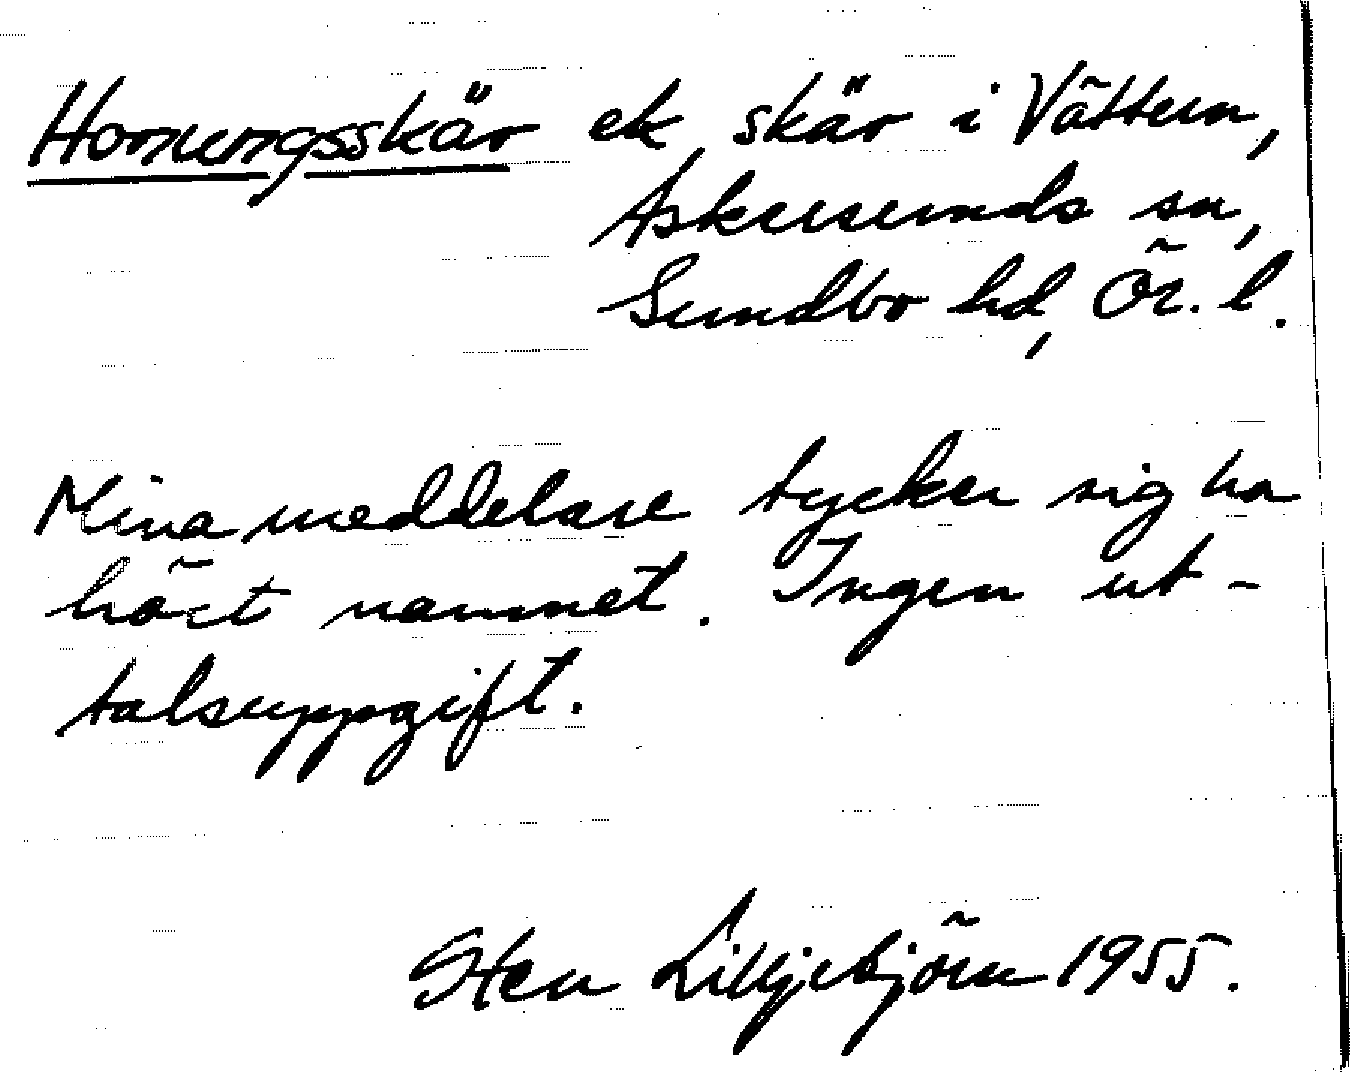 Hornungsskär ek, skär i Vättern,
Askersunds sn,
Sundbo hd, Ör. l.
Mina meddelare tycker sig ha
hört namnet. Ingen ut-
talsuppgift.
Sten Lilljebjörn 1955.